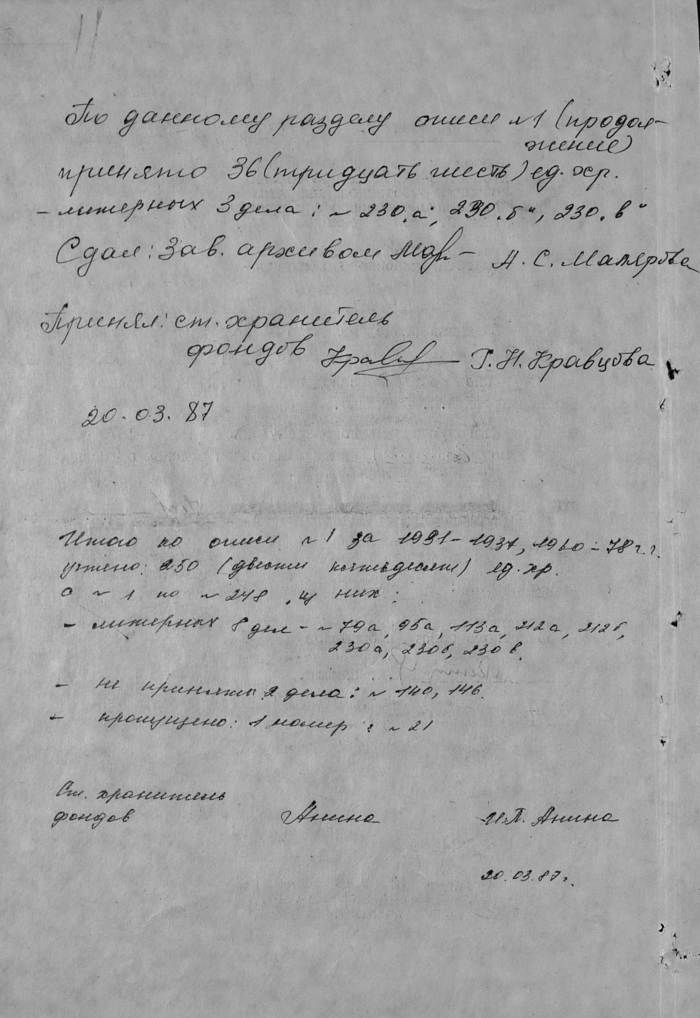 11
По данному разделу описи №1 (продол-
жение)
принято 36 (тридцать шесть) ед. хр.
- литерных 3 дела: № 230 „а", 230 „б", 230 „в"
Сдал: Зав. архивом А. С. Малярова
Принял: ст. хранитель
фондов Г. Н. Кравцова
20.03.87
Итого по описи №1 за 1931-1937, 1960-78 г.г.
учтено: 250 (двести пятьдесят) ед. хр.
с №1 по №248, из них:
- литерных 8 дел - № 79а, 95а, 113а, 212а, 212б,
230а, 230б, 230в.
- не приняты 2 дела: № 140, 146.
- пропущено: 1 номер: № 21
Ст. хранитель
фондов Анина И.П. Анина
20.03.87г.